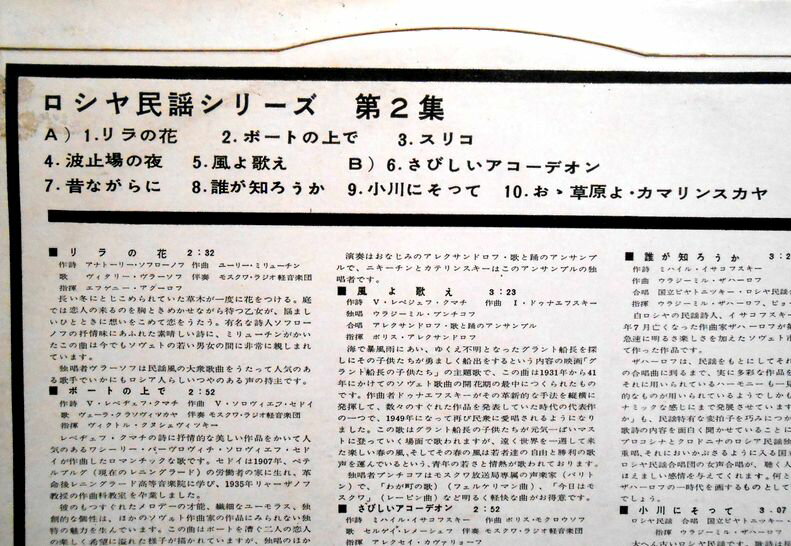 ロシヤ民謡シリーズ 第2集
A) 1.リラの花 2.ボートの上で 3.スリコ
4.波止場の夜 5.風よ歌え B) 6.さびしいアコーデオン
7.昔ながらに 8.誰が知ろうか 9.小川にそって 10.おゝ草原よ・カマリンスカヤ
■ リラの花 2:32
作詩 アナトーリー・ソフローノフ 作曲 ユーリー・ミリューチン
歌 ヴィタリー・ヴラーソフ 伴奏 モスクワ・ラジオ軽音楽団
指揮 エフゲニー・アグーロフ
長い冬にとじこめられていた草木が一度に花をつける。庭
では恋人の来るのを胸ときめかせながら待つ乙女が、悩まし
いひとときに想いをこめて恋をうたう。有名な詩人ソフロー
ノフの抒情味にあふれた素晴しい詩に、ミリューチンがかい
たこの曲は今でもソヴェトの若い男女の間に非常に親しまれ
ています。
独唱者ヴラーソフは民謡風の大衆歌曲をうたって人気のあ
る歌手でいかにもロシア人らしいつやのある声の持主です。
■ ボートの上で 2:52
作詩 V・レベヂェフ・クマチ 作曲 V・ソロヴィエフ・セドイ
歌 ヴェーラ・クラソヴィツカヤ 伴奏 モスクワ・ラジオ軽音楽団
指揮 ヴィクトル・クヌシェヴィツキー
レベヂェフ・クマチの詩に抒情的な美しい作品をかいて人
気のあるワシーリー・パーヴロヴィチ・ソロヴィエフ・セド
イが作曲したロマンチックな歌です。セドイは1907年、ペテ
ルブルグ(現在のレニングラード)の労働者の家に生れ、革
命後レニングラード高等音楽院に学び、1935年リャーザノフ
教授の作曲科教室を卒業しました。
彼のもつすぐれたメロデーの才能、繊細なユーモラス、独
創的な個性は、ほかのソヴェト作曲家の作品にみられない独
特の魅力を生んでいます。この曲はボートを漕ぐ二人の恋人
の楽しく希望に溢れた様子が描かれていますが、独唱のほか
演奏はおなじみのアレクサンドロフ・歌と踊のアンサンブ
ルで、ニキーチンとカテリンスキーはこのアンサンブルの独
唱者です。
■ 風よ歌え 3:23
作詩 V・レベジェフ・クマチ 作曲 I・ドゥナエフスキー
独唱 ウラジーミル・ブンチコフ
合唱 アレクサンドロフ・歌と踊のアンサンブル
指揮 ボリス・アレクサンドロフ
海で暴風雨にあい、ゆくえ不明となったグラント船長を探
しにその子供たちが勇ましく船出をするという内容の映画「グ
ラント船長の子供たち」の主題歌で、この曲は1931年から41
年にかけてのソヴェト歌曲の開花期の最中につくられたもの
です。作曲者ドゥナエフスキーがその革新的な手法を縦横に
発揮して、数々のすぐれた作品を発表していた時代の代表作
の一つで、1949年になって再び民衆に愛唱されるようになり
ました。この歌はグラント船長の子供たちが元気一ぱいマス
トに登っていく場面で歌われますが、遠く世界を一週して来
た楽しい春の風、そしてその春の風は若者達の自由と勝利の歌
声を運んでいるという、青年の若さと情熱が歌われております。
独唱者ブンチコフはモスクワ放送局専属の声楽家(バリト
ン)で、「わが町の歌」(フェルケリマン曲)、「今日はモ
スクワ」(レーピン曲)など明るく軽快な曲がお得意です。
■ さびしいアコーデオン 2:52
作詩 ミハイル・イサコフスキー 作曲 ボリス・モクロウソフ
歌 セルゲイ・レメーシェフ 伴奏 モスクワ・ラジオ軽音楽団
指揮 アレクセイ・カヴァリョーフ
■ 誰が知ろうか 3:2
作詩 ミハイル・イサコフスキー
作曲 ウラジーミル・ザハーロフ
合唱 国立ピヤトニツキー・ロシヤ民謡合
指揮 ウラジーミル・ザハーロフ、ピョ
白ロシヤの民謡詩人、イサコフスキー
年7月亡くなった作曲家ザハーロフが
急速に明るさ楽しさを加えたソヴェト市
て作った作品です。
ザハーロフは、民謡をもとにしてそれ
の合唱曲に到るまで、実に多彩な作品を
それに用いられているハーモニーも一見
的なものが用いられているようでしかも
ナミックな感じにまで発展させています
か」も、民謡特有な変拍子を巧みにつか
く歌詩の内容を面白く聞かせていることに
プロコシナとクロドニナのロシヤ民謡独
重唱、それにおいかぶさるように入る国立
ロシヤ民謡合唱団の女声合唱が、聴く人
ほほえましい感情を与えてくれます。何と
ザハーロフの一時代を画するものとして
でしょう。
■ 小川にそって 3.07
ロシヤ民謡 合唱 国立ピヤトニツキー・
指揮 ウラジーミル・ザハーロフ